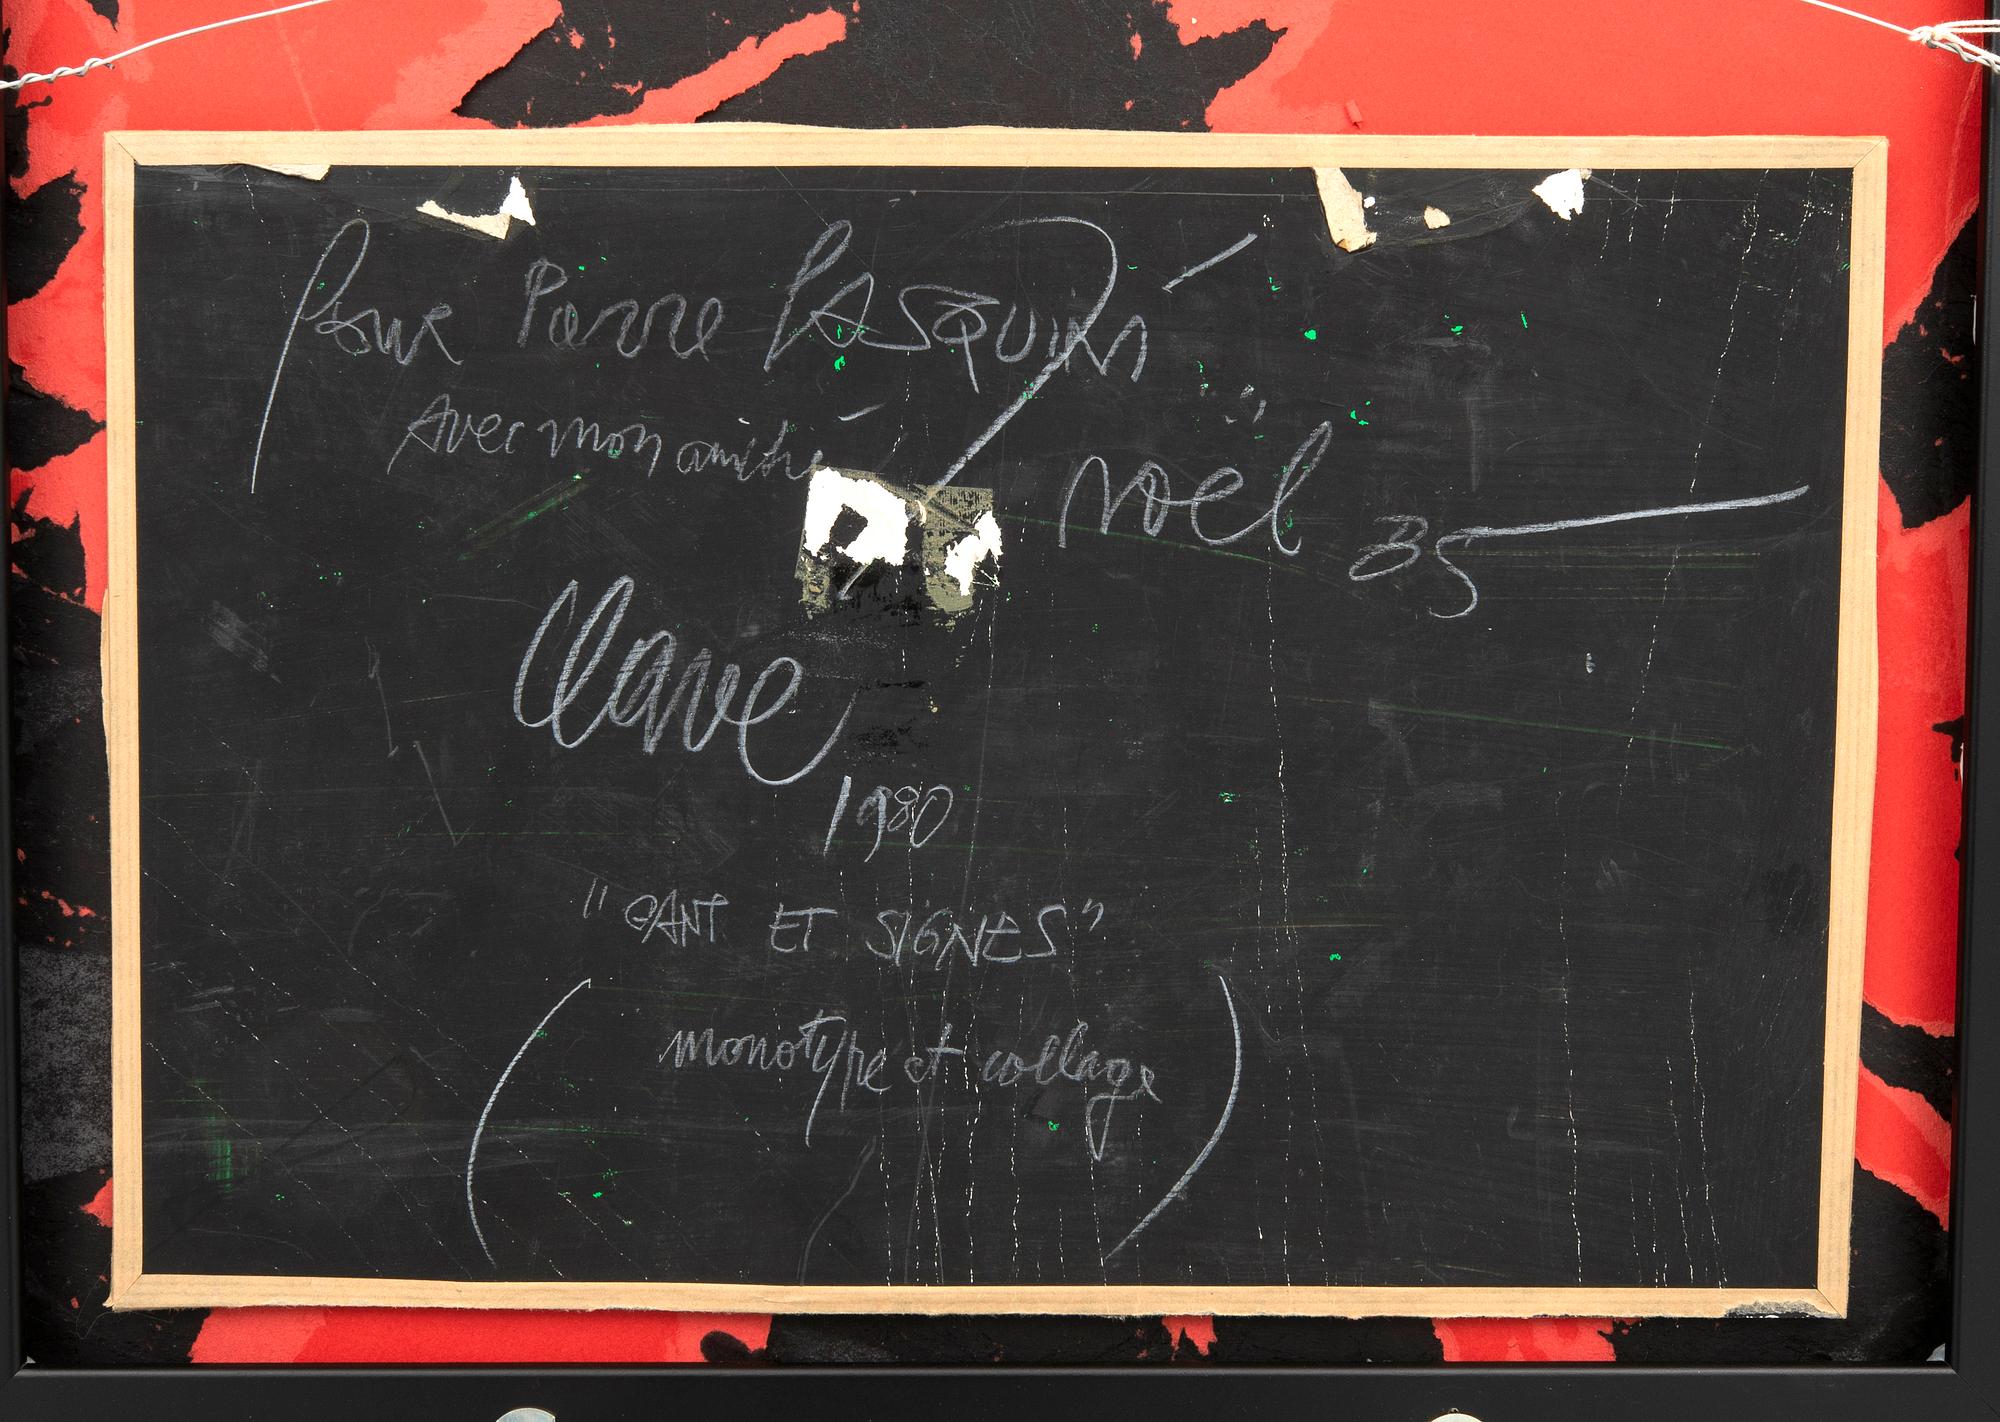 Pour Pierre PASQUINI
Avec mon amitié
noël 85
Clavé
1980
"GANT ET SIGNES"
(monotype et collage)